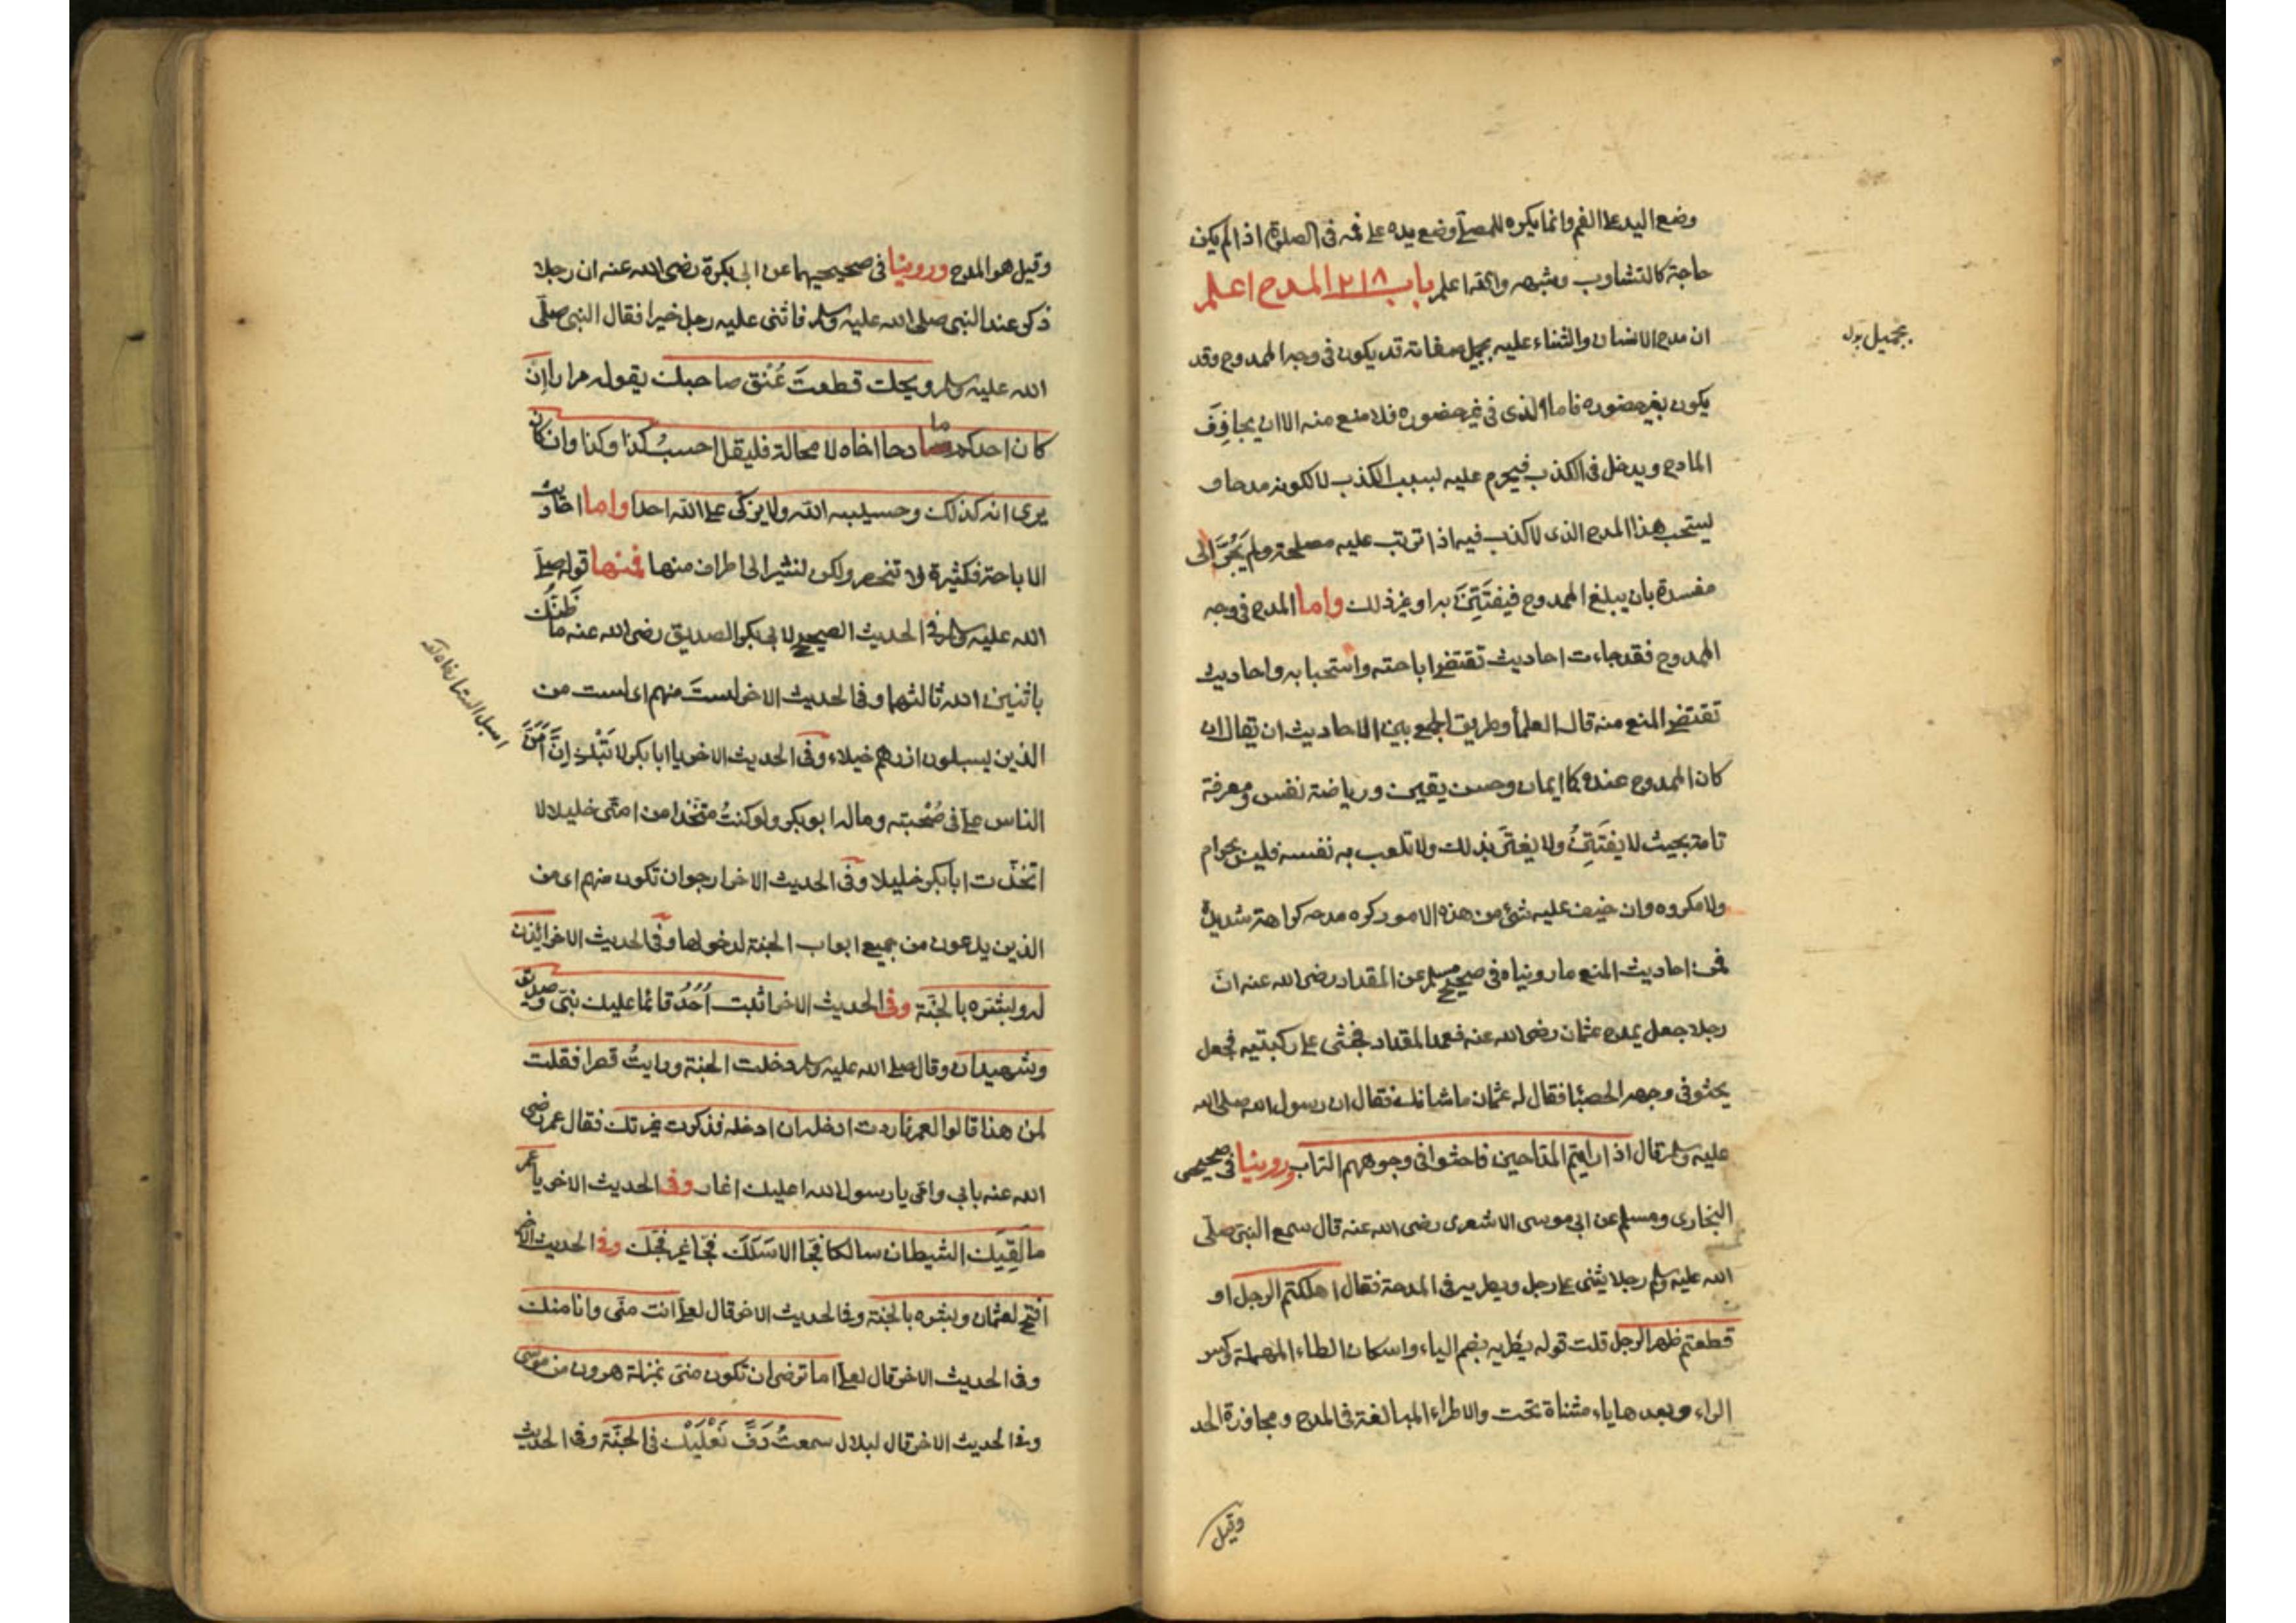 وضع اليد على الفم وانما يكره للمصلى وضع يده على فمه فى الصلوة اذا لم يكن
حاجة كالتثاوب وشبهه والله اعلم باب ٢١٨ المدح اعلم
ان مدح الانسان والثناء عليه بجميل صفاته قد يكون فى وجه الممدوح وقد
بجميل بدل
يكون بغير حضوره فاما الذى فى غير حضوره فلا منع منه الا ان يجازف
المادح ويدخل فى الكذب فيحرم عليه بسبب الكذب لا لكونه مدحا و
يستحب هذا المدح الذى لا كذب فيه اذا ترتب عليه مصلحة ولم يَجُرَّ الى
مفسدة بان يبلغ الممدوح فيفتَتِنَ به او غير ذلك واما المدح فى وجه
الممدوح فقد جاءت احاديث تقتضى اباحته واستحبابه واحاديث
تقتضى المنع منه قال العلمأ وطريق الجمع بين الاحاديث ان يقال ان
كان الممدوح عنده كما ايمان وحسن يقين ورياضة نفس ومعرفة
تامة بحيث لا يفتَتِنُ ولا يغتَر بذلك ولا تلعب به نفسه فليس بحرام
ولا مكروه وان خيف عليه شئ من هذه الامور كره مدحه كراهة شديدة
فمن احاديث المنع ما رويناه فى صحيح مسلم عن المقداد رضى الله عنه انّ
رجلا جعل يمدح عثمان رضى الله عنه فعمد المقداد فجثى على ركبتيه فجعل
يحثو فى وجهه الحصبا فقال له عثمان ما شانك فقال ان رسول الله صلى الله
عليه وسلم قال اذا رايتم المدّاحين فاحثوا فى وجوههم التراب وروينا فى صحيحى
البخارى ومسلم عن ابى موسى الاشعرى رضى الله عنه قال سمع النبى صلّى
الله عليه وسلم رجلا يثنى على رجل ويطريه فى المدحة فقال اهلكتم الرجل او
قطعتم ظهر الرجل قلت قوله يطريه بضم الياء واسكان الطاء المهملة وكسر
الراء وبعدها ياء مثناة تحت والاطراء المبالغة فى المدح ومجاوزة الحد
وقيل
وقيل هو المدح وروينا فى صحيحيهما عن ابى بكرة رضى الله عنه ان رجلا
ذكر عند النبى صلى الله عليه وسلم فاثنى عليه رجل خيرا فقال النبى صلّى
الله عليه وسلم ويحك قطعتَ عُنُق صاحبك يقوله مرارا اِن
كان احدكم مادحا اخاه لا محالة فليقل احسبُ كذا وكذا وان كان
يرى انه كذلك وحسيبه الله ولا يزكّى على الله احدا واما احاديث
الاباحة فكثيرة لا تنحصر ولكن نشير الى اطراف منها فمنها قوله صلى
الله عليه وسلم فى الحديث الصحيح لابى بكر الصديق رضى الله عنه ما ظَنُّك
باثنين الله ثالثهما وفى الحديث الاخر لستَ منهم اى لست من
الذين يسبلون ازرهم خيلاء وفى الحديث الاخر يا ابا بكر لا تَبْكِ اِنَّ اَمَنَّ
الناس علىّ فى صُحْبته وماله ابو بكر ولو كنتُ متخذا من امتى خليلا لا
اتخذت ابا بكر خليلا وفى الحديث الاخر ارجو ان تكون منهم اى من
الذين يدعون من جميع ابواب الجنة لدخولها وفى الحديث الاخر ائذن
له وبشره بالجنّة وفى الحديث الاخر اثبت اُحُدُ فانما عليك نبىّ وصديق
وشهيدان وقال صلى الله عليه وسلم دخلت الجنة ورايتُ قصرا فقلت
لمن هذا قالوا لعمر فاردت ان ادخله فذكرت غيرتك فقال عمر رضى
الله عنه بابى وامّى يا رسول الله اعليك اغار وفى الحديث الاخر يا عمر
ما لَقِيَك الشيطان سالكا فجّا الا سَلَكَ فجّا غير فجّك وفى الحديث الاخر
افتح لعثمان وبشره بالجنة وفى الحديث الاخر قال لعلىّ انت منّى وانا منك
وفى الحديث الاخر قال لعلىّ اما ترضى ان تكون منّى بمنزلة هرون من موسى
وفى الحديث الاخر قال لبلال سمعتُ دَفَّ نَعْلَيْك فى الجنّة وفى الحديث